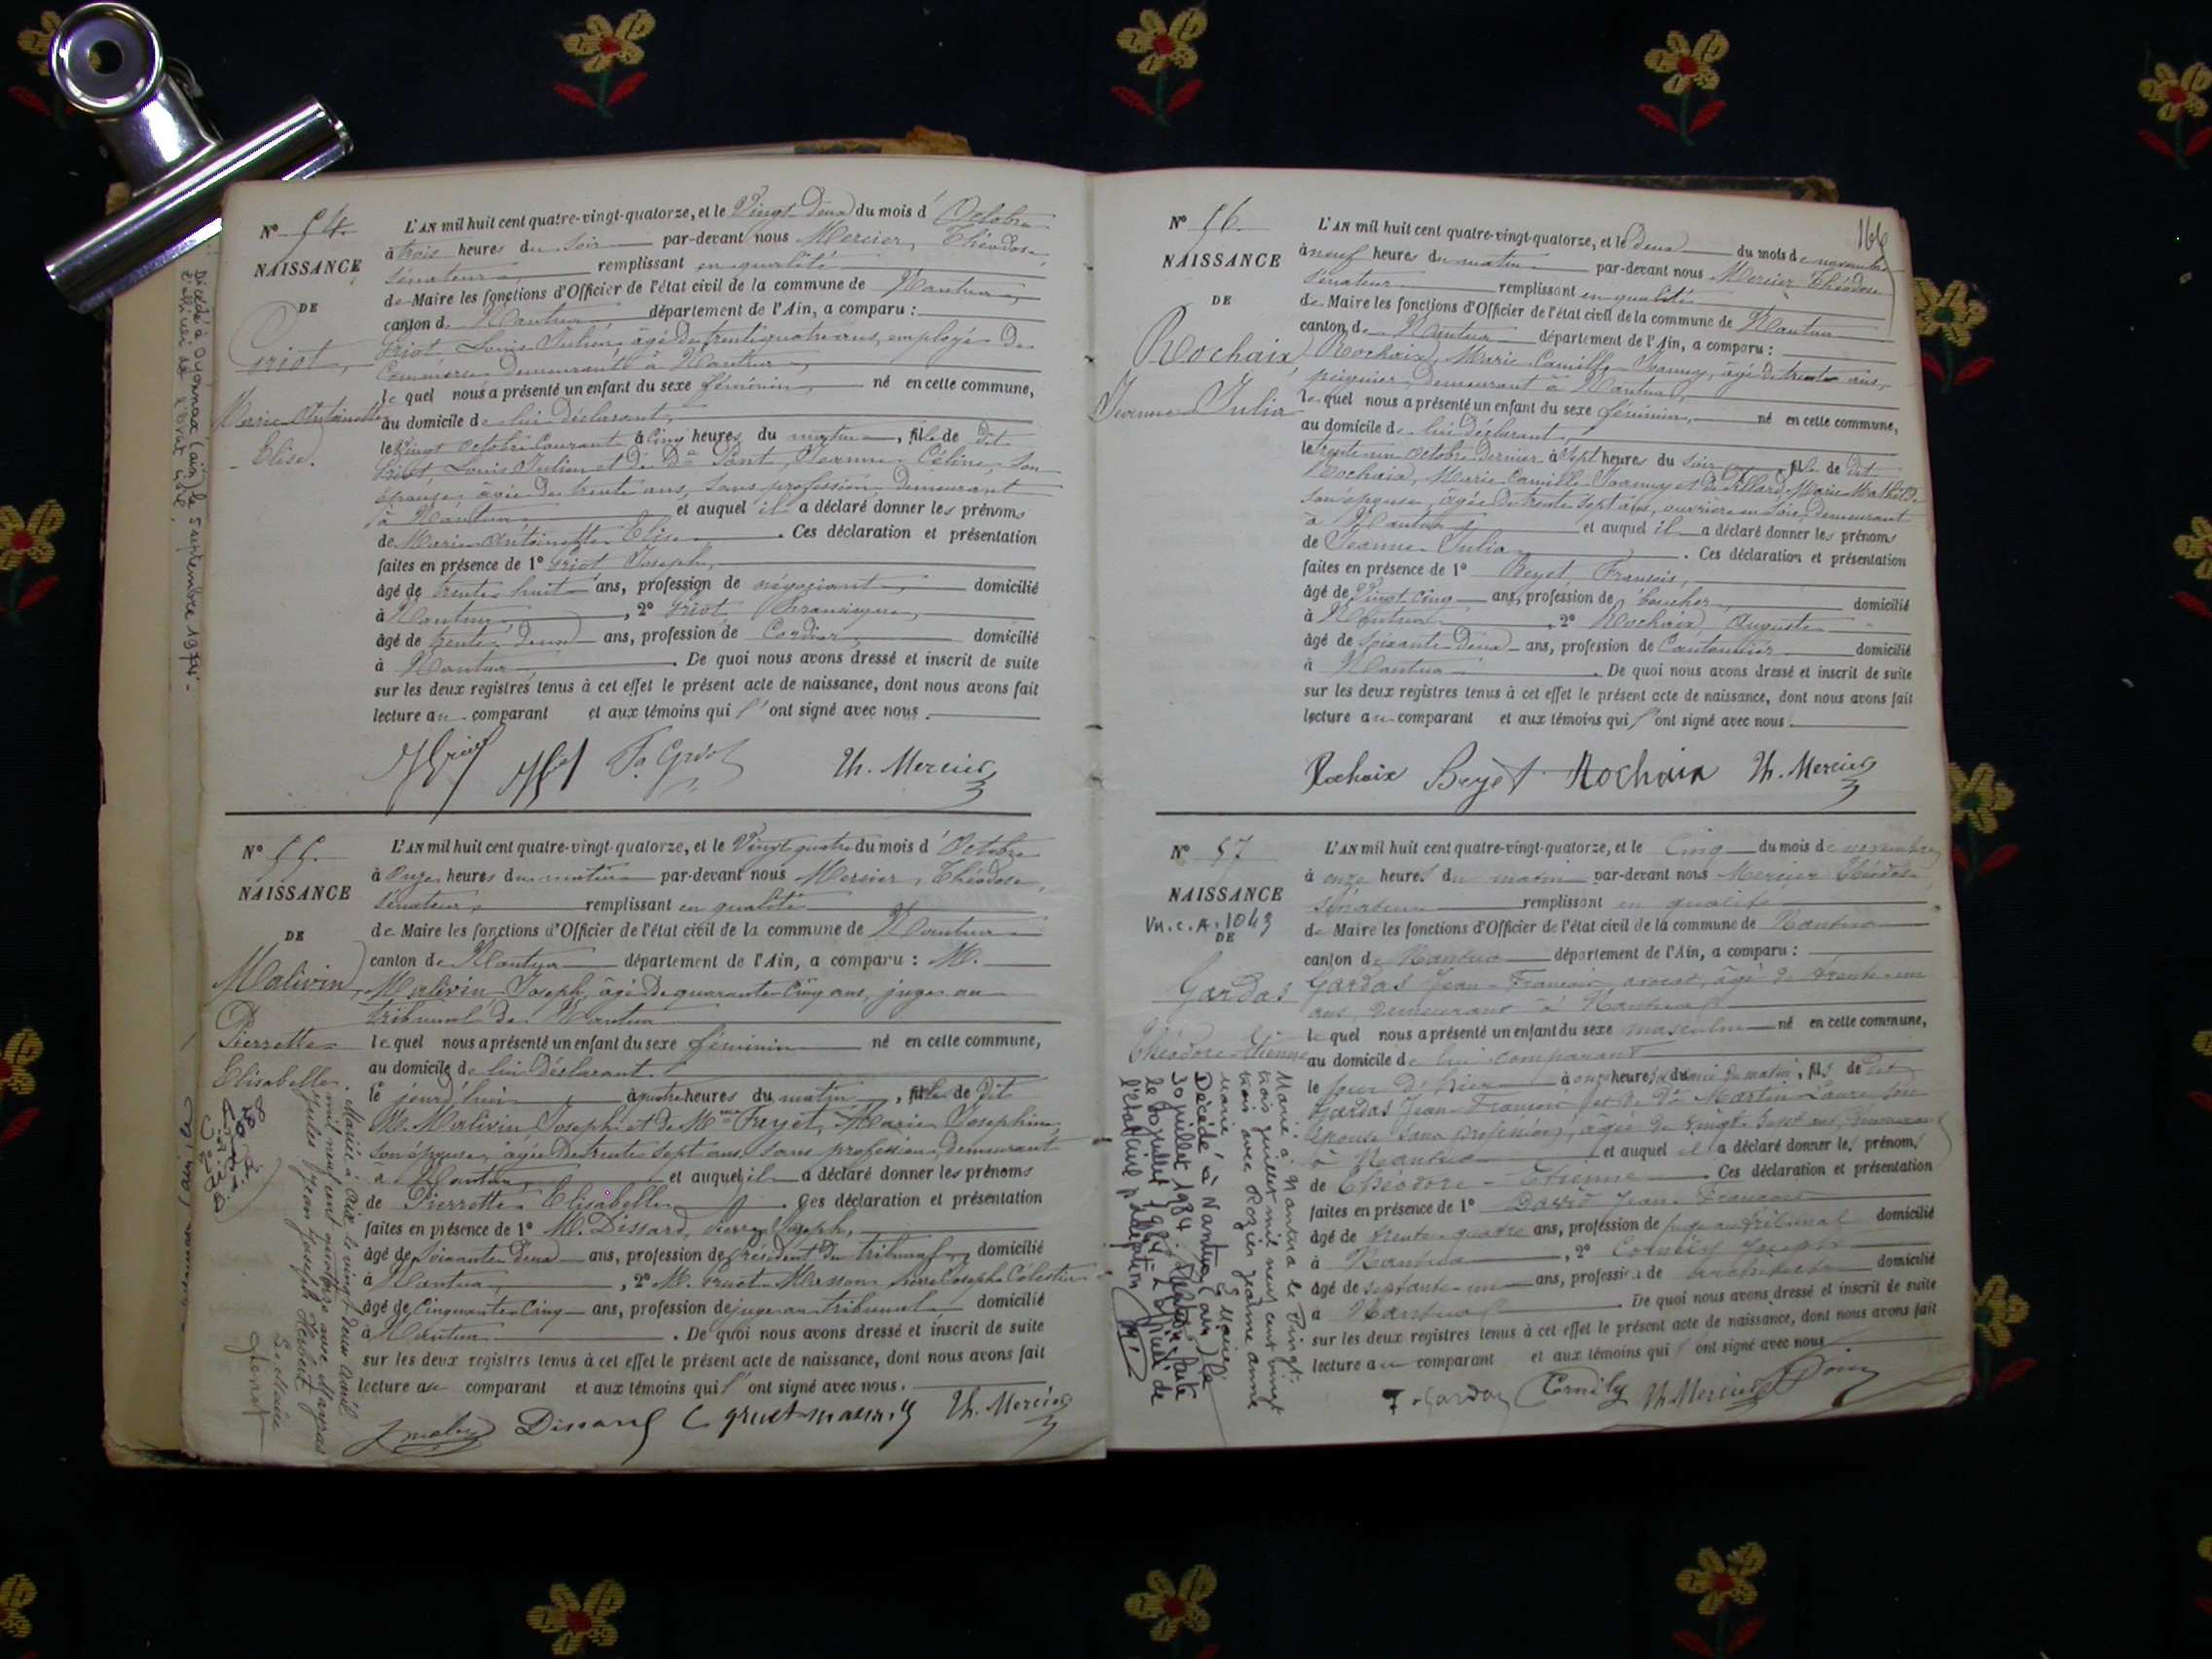 N° 54.
NAISSANCE
DE
Griot,
Marie Antoinette
Elise.
L'AN mil huit cent quatre-vingt-quatorze, et le Vingt Deux du mois d'Octobre
à trois heures du soir par-devant nous Mercier, Théodose,
sénateur, remplissant en qualité
de Maire les fonctions d'Officier de l'état civil de la commune de Nantua,
canton de Nantua département de l'Ain, a comparu :
Griot, Louis Julien, âgé de trente quatre ans, employé de
Commerce demeurant à Nantua,
le quel nous a présenté un enfant du sexe féminin, né en cette commune,
au domicile de lui déclarant,
le Vingt octobre courant à Cinq heures du matin, fille de dit
Griot, Louis Julien et de De Pont, Jeanne Céline, son
épouse, âgée de trente ans, sans profession, demeurant
à Nantua et auquel il a déclaré donner les prénoms
de Marie Antoinette Elise. Ces déclaration et présentation
faites en présence de 1° Griot Joseph,
âgé de trente huit ans, profession de négociant, domicilié
à Nantua, 2° Griot Francisque,
âgé de trente deux ans, profession de Cordier, domicilié
à Nantua. De quoi nous avons dressé et inscrit de suite
sur les deux registres tenus à cet effet le présent acte de naissance, dont nous avons fait
lecture au comparant et aux témoins qui l'ont signé avec nous.
Fs Griot Th. Mercier
Décédé à Oyonnax (Ain) le 5 septembre
l'officier de l'état civil,
N° 55.
NAISSANCE
DE
Malivin,
Pierrette
Elisabelle.
L'AN mil huit cent quatre-vingt-quatorze, et le Vingt quatre du mois d'Octobre
à Onze heures du matin par-devant nous Mercier, Théodose,
sénateur, remplissant en qualité
de Maire les fonctions d'Officier de l'état civil de la commune de Nantua
canton de Nantua département de l'Ain, a comparu : M.
Malivin Joseph, âgé de quarante Cinq ans, juge au
tribunal de Nantua
le quel nous a présenté un enfant du sexe féminin né en cette commune,
au domicile de lui Déclarant.
le jourd'hui à quatre heures du matin, fille de dit
M. Malivin, Joseph et de Mme Freyet, Marie Josephine,
son épouse, âgée de trente sept ans, sans profession, demeurant
à Nantua, et auquel il a déclaré donner les prénoms
de Pierrette Elisabelle. Ces déclaration et présentation
faites en présence de 1° M. Dissard, Pierre Joseph,
âgé de soixante deux ans, profession de président du tribunal, domicilié
à Nantua, 2° M. Gruet Masson Pierre Joseph Célestin
âgé de Cinquante Cinq ans, profession de juge au tribunal domicilié
à Nantua. De quoi nous avons dressé et inscrit de suite
sur les deux registres tenus à cet effet le présent acte de naissance, dont nous avons fait
lecture au comparant et aux témoins qui l'ont signé avec nous.
Dissard C gruet masson Th. Mercier
Mariée à Aix le vingt deux avril
mil neuf cent quatorze avec
Jules Jean Joseph Herbert
Le Maire
166
N° 56.
NAISSANCE
DE
Rochaix,
Jeanne Julia
L'AN mil huit cent quatre-vingt-quatorze, et le deux du mois de novembre
à neuf heures du matin par-devant nous Mercier Théodose
sénateur remplissant en qualité
de Maire les fonctions d'Officier de l'état civil de la commune de Nantua
canton de Nantua département de l'Ain, a comparu :
Rochaix, Marie Camille Joanny, âgé de trente ans,
peignier, demeurant à Nantua,
le quel nous a présenté un enfant du sexe féminin, né en cette commune,
au domicile de lui déclarant,
le trente un Octobre dernier à sept heures du soir, fille de dit
Rochaix, Marie Camille Joanny et de Pillard, Marie Mathilde
son épouse, âgée de trente sept ans, ouvrière en soie, demeurant
à Nantua et auquel il a déclaré donner les prénoms
de Jeanne Julia. Ces déclaration et présentation
faites en présence de 1° Beyet François,
âgé de Vingt Cinq ans, profession de boucher, domicilié
à Nantua, 2° Rochaix Auguste
âgé de soixante Deux ans, profession de Cantonnier domicilié
à Nantua. De quoi nous avons dressé et inscrit de suite
sur les deux registres tenus à cet effet le présent acte de naissance, dont nous avons fait
lecture au comparant et aux témoins qui l'ont signé avec nous.
Rochaix Beyet Rochaix Th. Mercier
N° 57
NAISSANCE
Vu.c.A.1043
DE
Gardas
Théodore-Etienne
L'AN mil huit cent quatre-vingt-quatorze, et le Cinq du mois de novembre
à onze heures du matin par-devant nous Mercier Théodose
sénateur remplissant en qualité
de Maire les fonctions d'Officier de l'état civil de la commune de Nantua
canton de Nantua département de l'Ain, a comparu :
Gardas Jean-François avocat, âgé de trente-un
ans, demeurant à Nantua
le quel nous a présenté un enfant du sexe masculin né en cette commune,
au domicile de lui comparant
le jour d'hier à onze heures du matin, fils de dit
Gardas Jean-François et de De Martin Laure son
épouse sans profession, âgée de vingt sept ans, demeurant
à Nantua et auquel il a déclaré donner les prénoms
de Théodore-Etienne. Ces déclaration et présentation
faites en présence de 1° David Jean François
âgé de trente quatre ans, profession de juge au tribunal domicilié
à Nantua, 2° Cornily Joseph
âgé de septante-un ans, profession de architecte domicilié
à Nantua. De quoi nous avons dressé et inscrit de suite
sur les deux registres tenus à cet effet le présent acte de naissance, dont nous avons fait
lecture au comparant et aux témoins qui l'ont signé avec nous
J. Gardas Cornily Th. Mercier
Marié à Nantua le Vingt-
trois juillet mil neuf cent vingt
trois avec Rozier Jeanne Anne
Marie. Le Maire
Décédé à Nantua (Ain) le
30 juillet 1984. Mention faite
le 30 juillet 1984 L'officier de
l'état civil p. délégation